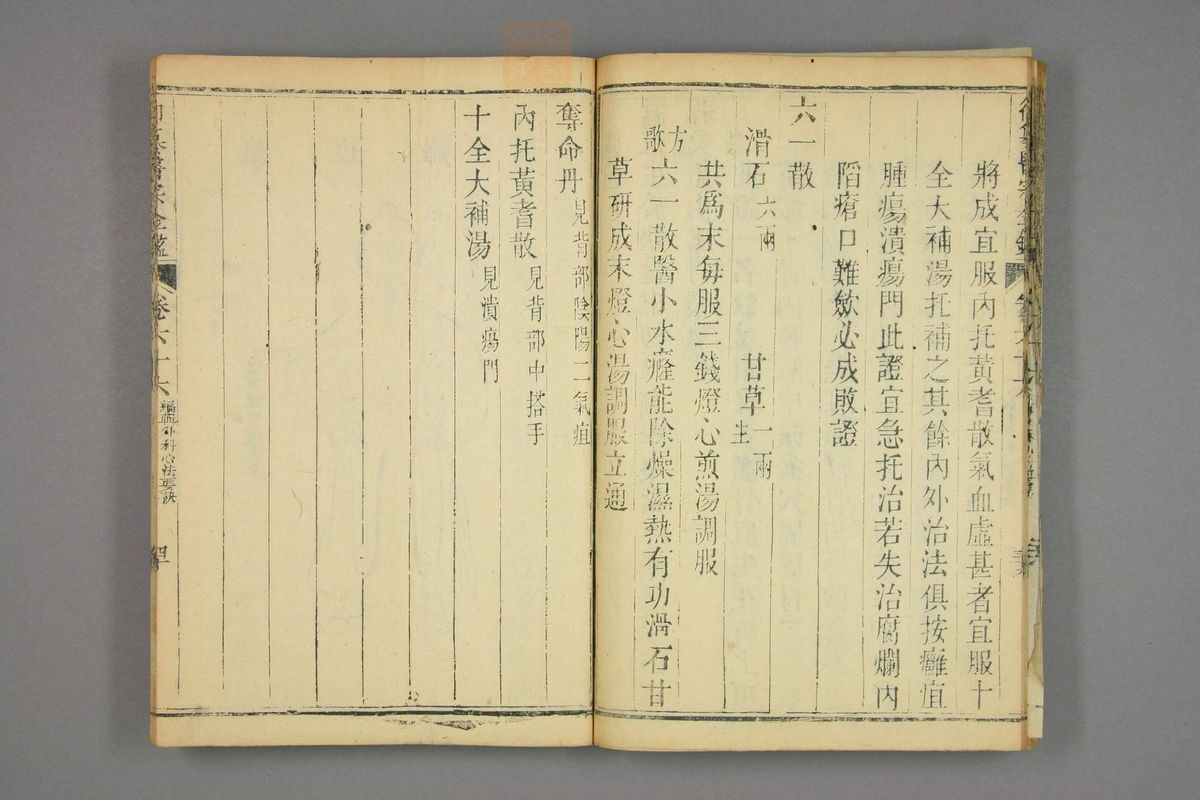 將成宜服內托黃耆散氣血虛甚者宜服十
全大補湯托補之其餘內外治法俱按癰疽
腫瘍潰瘍門此證宜急托治若失治腐爛內
陷瘡口難斂必成敗證
六一散
滑石六兩 甘草一兩生
共爲末每服三錢燈心煎湯調服
方歌 六一散醫小水癃能除燥濕熱有功滑石甘
草研成末燈心湯調服立通
奪命丹見背部陰陽二氣疽
內托黃耆散見背部中搭手
十全大補湯見潰瘍門
醫宗金鑑 卷六十六 編輯外科心法要訣